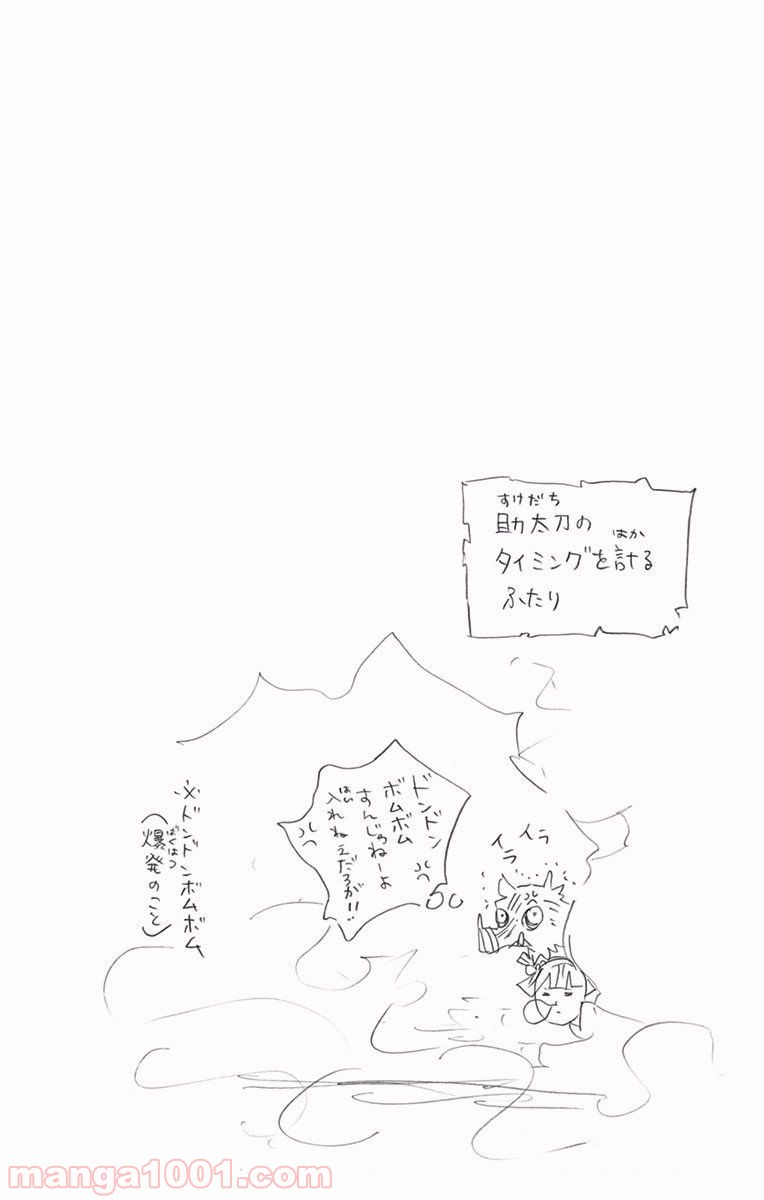 すけだち
助太刀の
はか
タイミングを計る
ふたり
イラ
イラ
ドンドン
ボムボム
すんじゃねーよ
はい
入れねえだろが!!
※ドンドンボムボム
ばくはつ
(爆発のこと)
manga1001.com